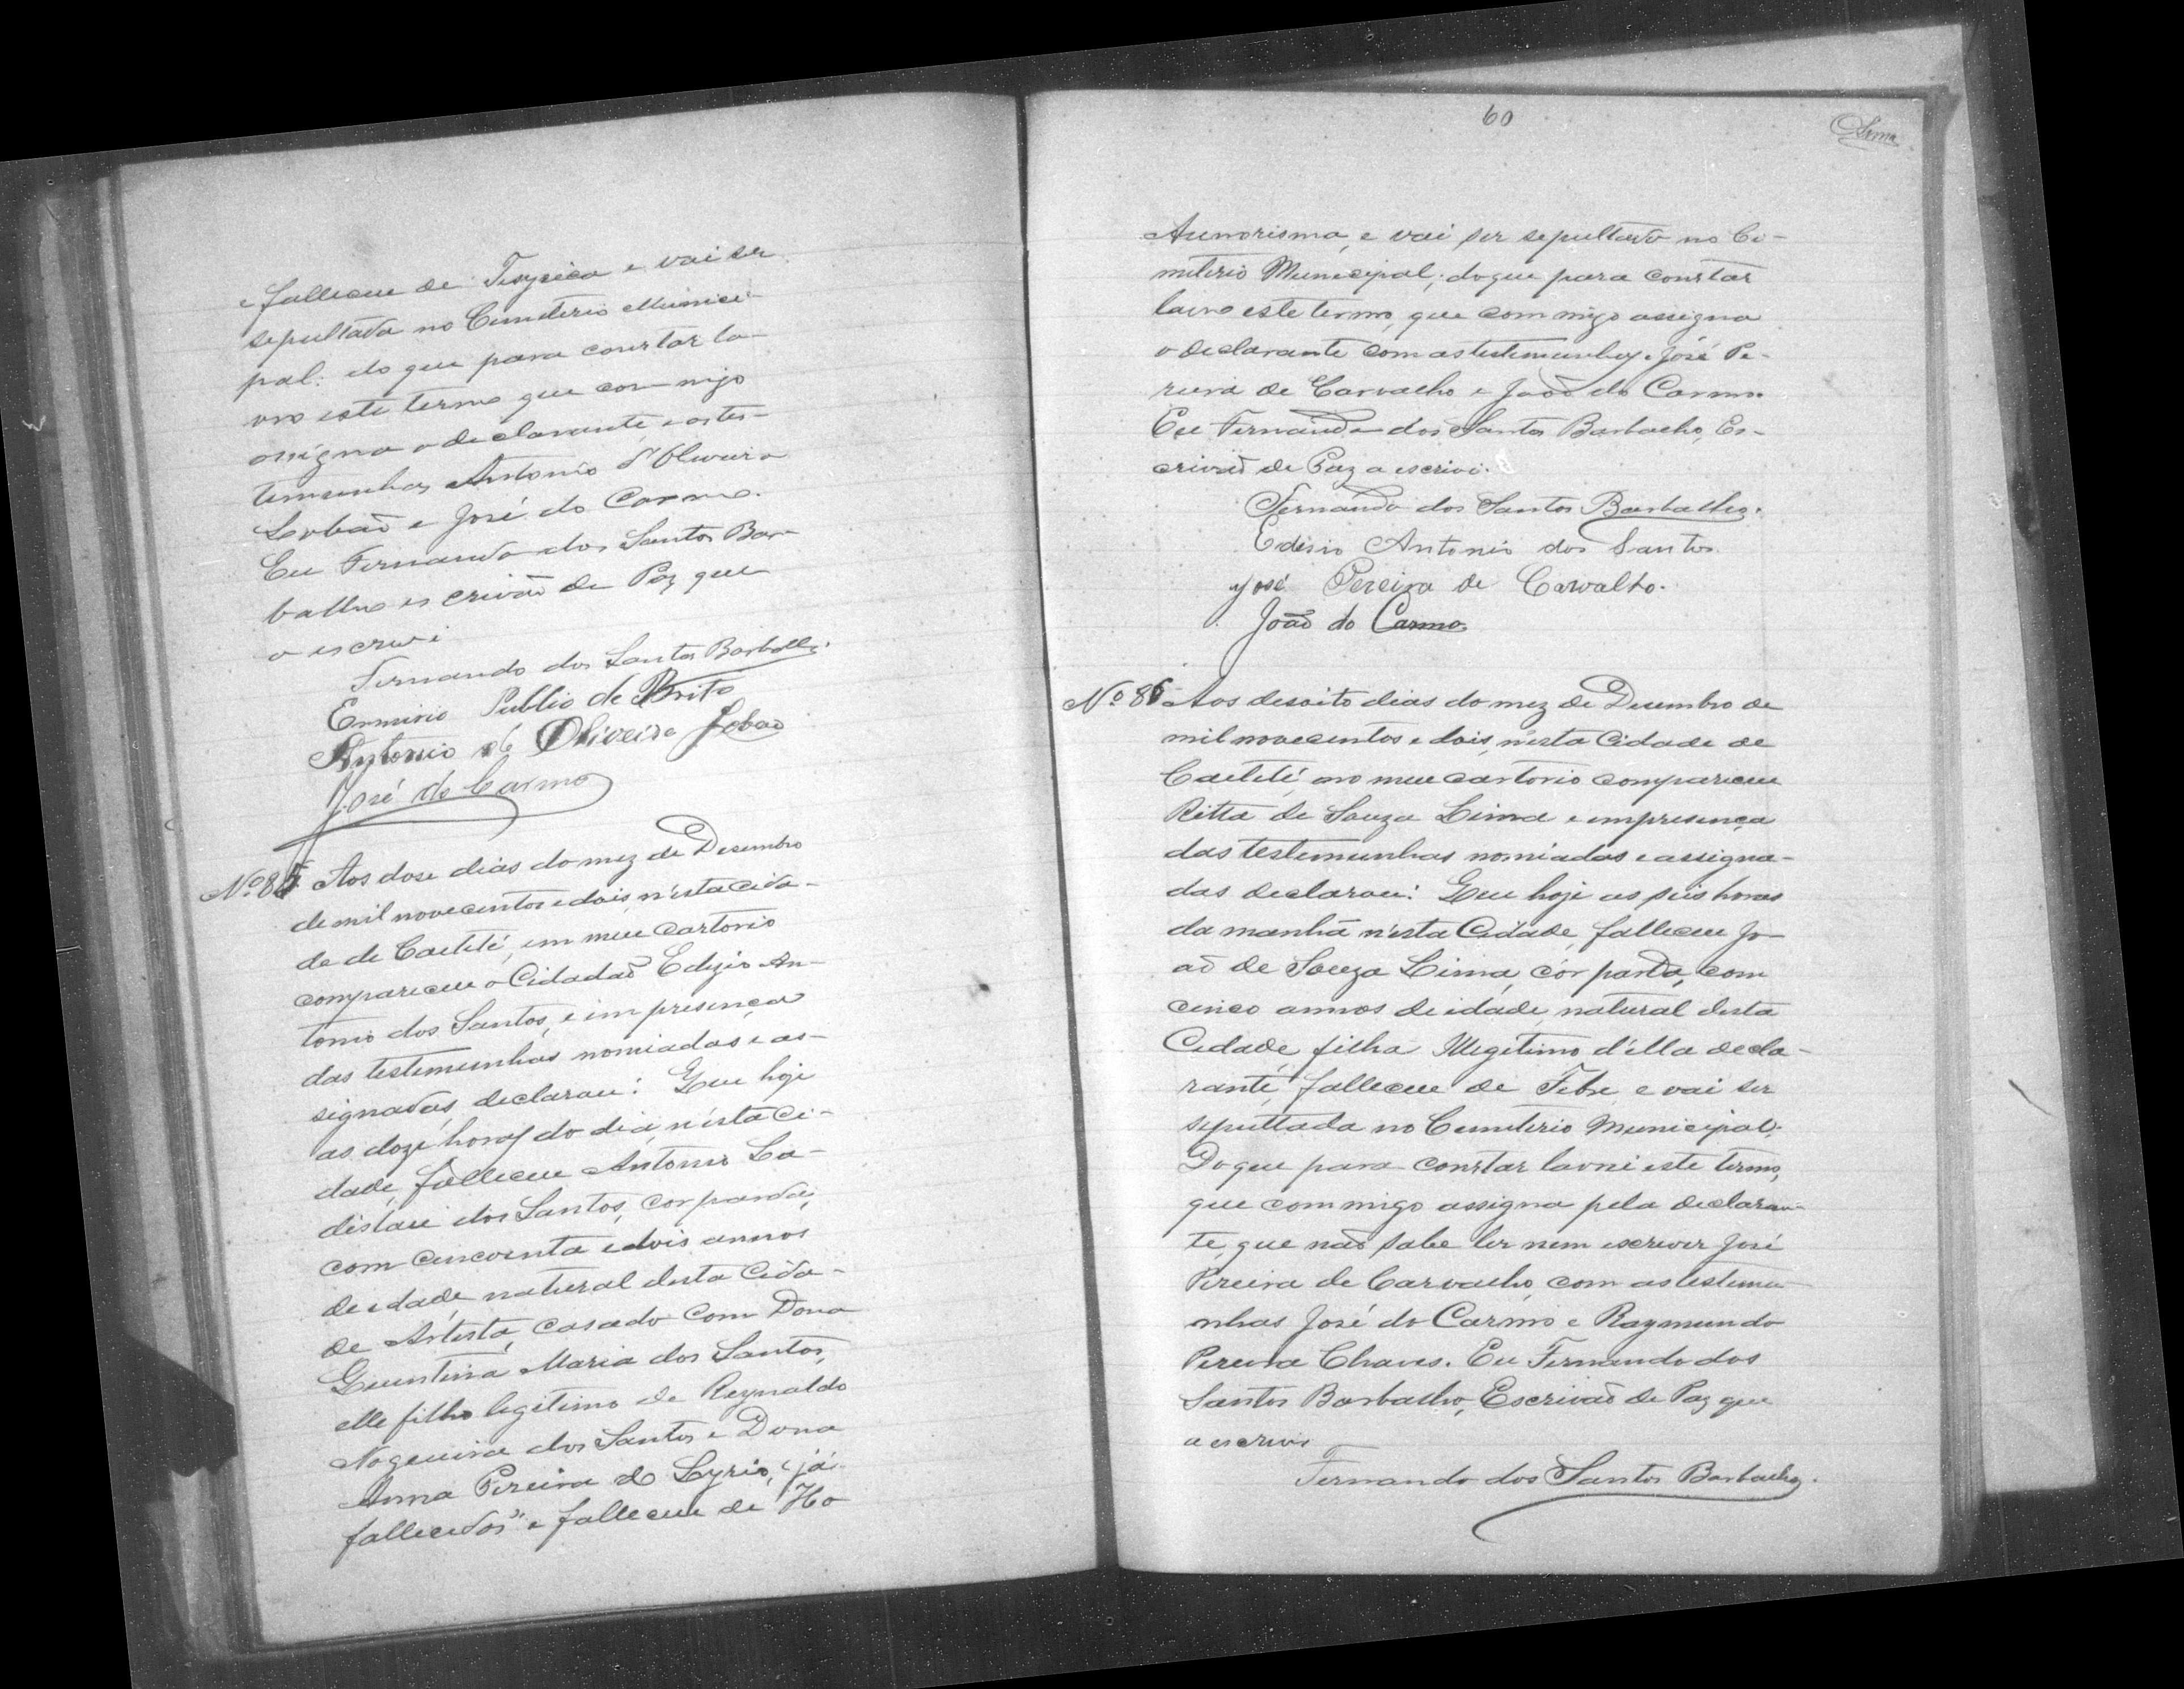 e falleceu de Tisysica e vai ser
sepultada no Cemiterio Munici-
pal. do que para constar la-
vro este termo que com migo
assigna o declarante e as tes-
temunhas Antonio d'Oliveira
Lobão e José do Carmo.
Eu Fernando dos Santos Bar-
balho escrivão de Paz que
o escrevi
Fernando dos Santos Barbalho.
Ermirio Publio de Brito
Antonio de Oliveira Lobão
José do Carmo
Nº 85 Aos dose dias do mez de Desembro
de mil novecentos e dois, n'esta cida-
de de Caetité, em meu cartorio
compareceu o Cidadão Edizio An-
tonio dos Santos, e em presença
das testemunhas nomiadas e as-
signadas, declarou: Que hoje
as doze horas do dia, n'esta Ci-
dade, falleceu Antonio La-
dislau dos Santos, cor parda,
com cincoenta e dois annos
de edade, natural desta Cida-
de Artista, casado com Dona
Guintina Maria dos Santos,
elle filho legitimo de Reynaldo
Nogueira dos Santos e Dona
Anna Pereira de Lyrio, já
fallecidos" e falleceu de Ho
60
Aumorisma, e vai ser sepultado no Ce-
miterio Municipal; do que para constar
lavro este termo, que com migo assigna
o declarante com as testemunhas José Pe-
reira de Carvalho e João do Carmo.
Eu Fernando dos Santos Barbalho, Es-
crivão de Paz o escrivi.
Fernando dos Santos Barbalho.
Edisio Antonio dos Santos
José Pereira de Carvalho.
João do Carmo
Nº 86 Aos desoito dias do mez de Desembro de
mil novecentos e dois, n'esta Cidade de
Caetité, no meu cartorio compareceu
Ritta de Souza Lima e em presença
das testemunhas nomiadas e assigna-
das declarou: Que hoje as seis horas
da manhã n'esta Cidade, falleceu Jo-
ão de Souza Lima, côr parda, com
cinco annos de idade, natural desta
Cidade, filha Illegitimo d'ella decla-
rante, falleceu de Febre e vai ser
sepultada no Cemiterio Municipal.
Do que para constar lavrei este termo,
que com migo assigna pela declaran-
te, que não sabe ler nem escrever José
Pereira de Carvalho, com as testemu-
nhas José do Carmo e Raymundo
Pereira Chaves. Eu Fernando dos
Santos Barbalho, Escrivão de Paz que
o escrevi
Fernando dos Santos Barbalho.